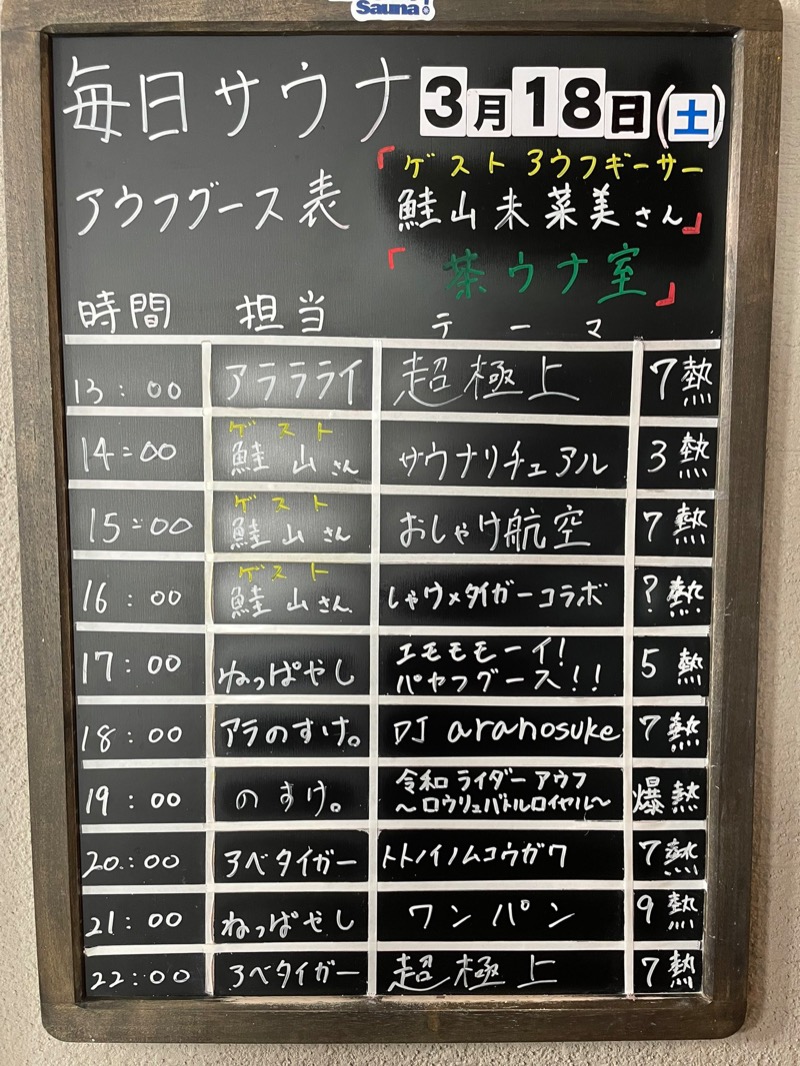 Sauna!
毎日サウナ 3月18日(土)
アウフグース表
「ゲスト アウフギーサー
鮭山未菜美さん」
「茶ウナ室」
時間 担当 テーマ
13:00 アラララライ 超極上 7熱
14:00 ゲスト 鮭山さん サウナリチュアル 3熱
15:00 ゲスト 鮭山さん おしゃけ航空 7熱
16:00 ゲスト 鮭山さん しゃけ×タイガーコラボ ?熱
17:00 ねっぱやし エモモモーイ! パヤフグース!! 5熱
18:00 アラのすけ。 DJ aranosuke 7熱
19:00 のすけ。 令和ライダーアウフ ~ロウリュバトルロイヤル~ 爆熱
20:00 アベタイガー トトノイノムコウガワ 7熱
21:00 ねっぱやし ワンパン 9熱
22:00 アベタイガー 超極上 7熱